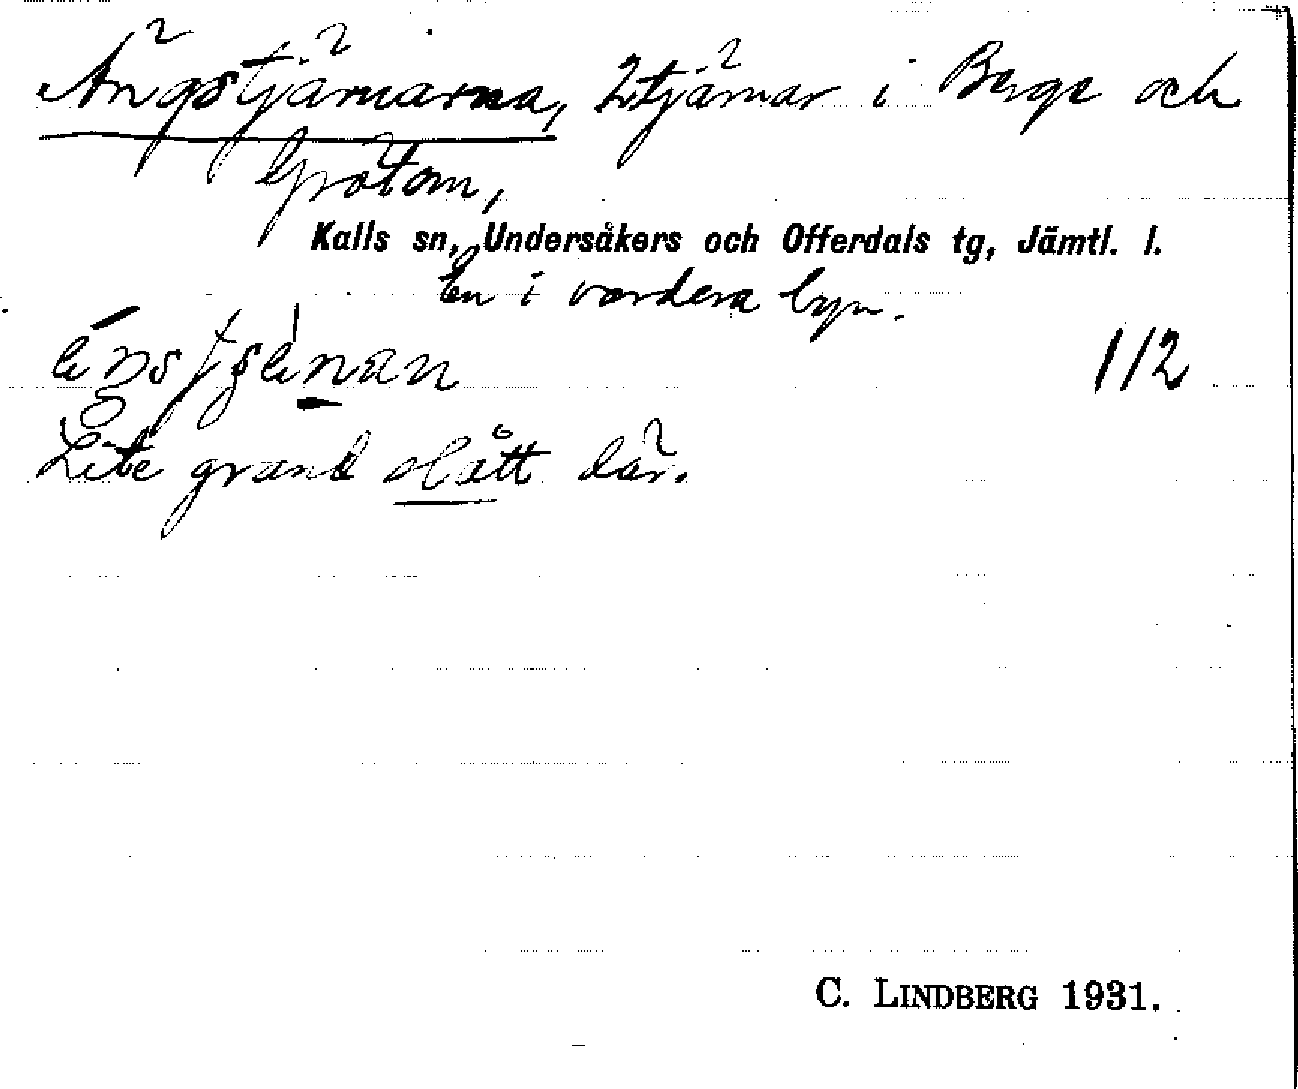 Ängstjärnarna, 2 tjärnar i Berge och
Gråtom,
Kalls sn, Undersåkers och Offerdals tg, Jämtl. l.
En i vardera byn.
112
Lite grand slått där.
C. LINDBERG 1931.